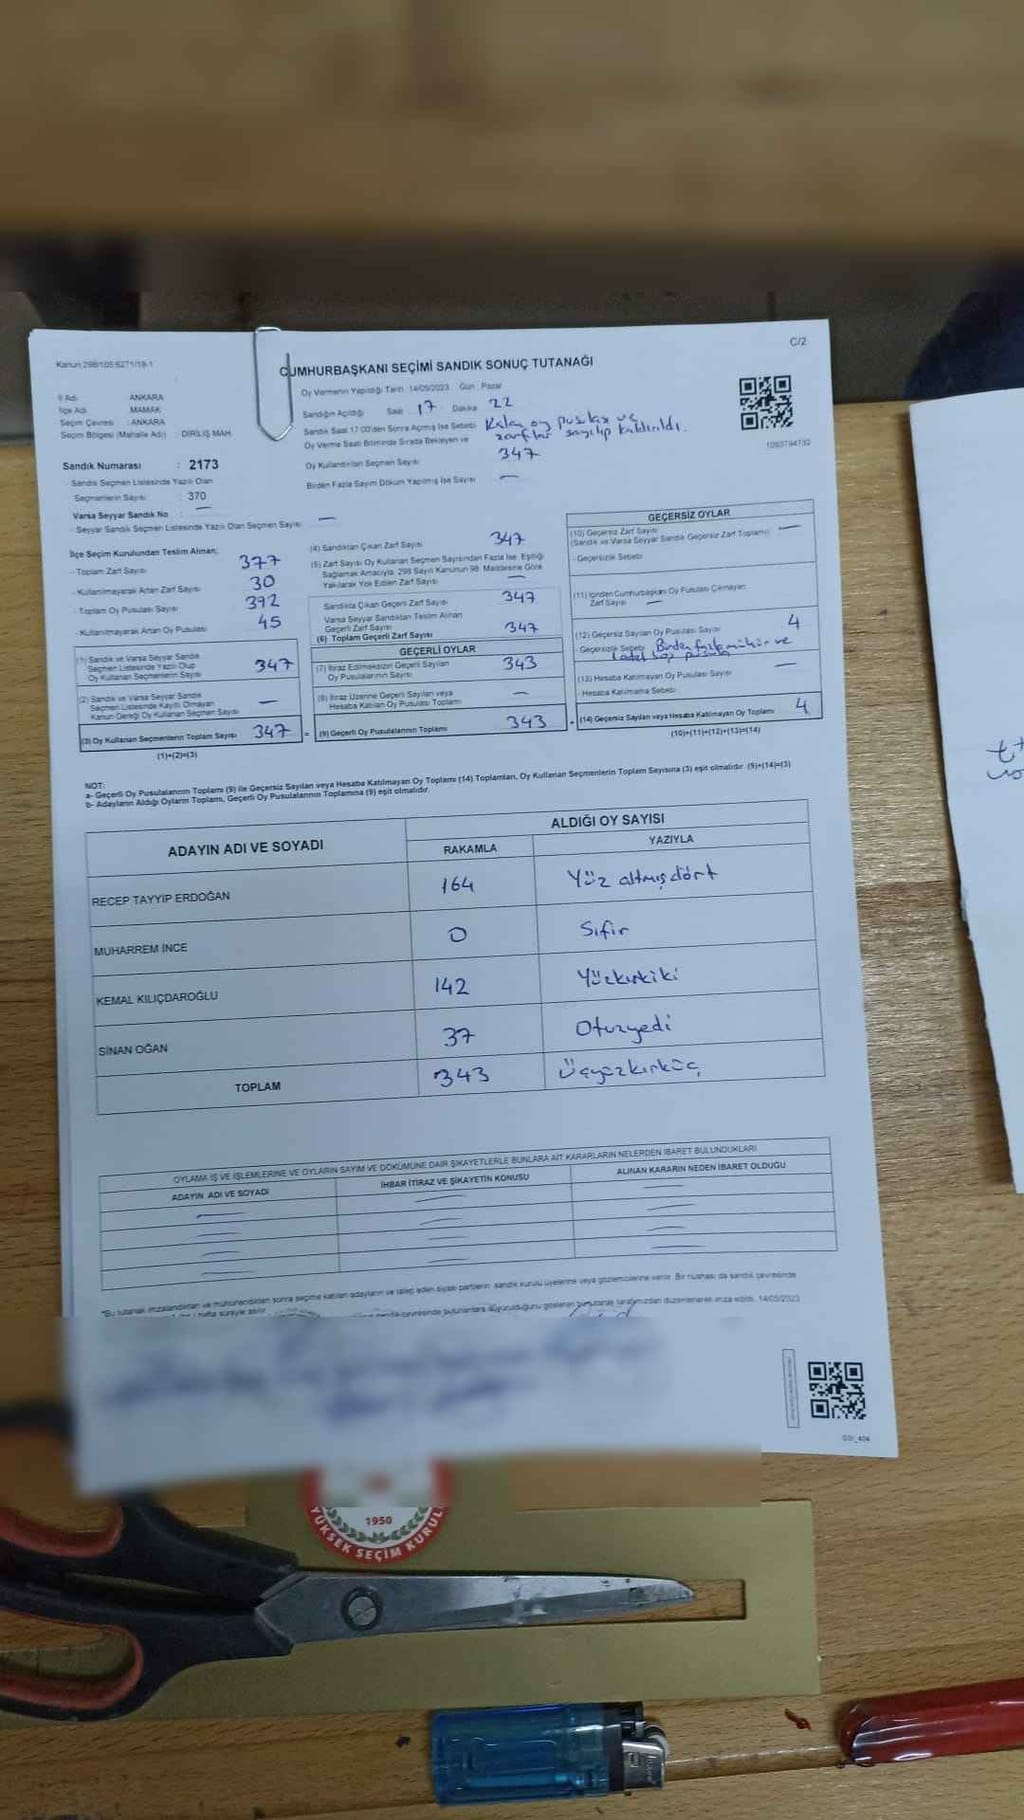 C/2
Kanun 298/105 6271/18-1
CUMHURBAŞKANI SEÇİMİ SANDIK SONUÇ TUTANAĞI
Oy Vermenin Yapıldığı Tarih : 14/05/2023 Gün : Pazar
İl Adı ANKARA
İlçe Adı MAMAK
Seçim Çevresi : ANKARA
Seçim Bölgesi (Mahalle Adı) : DİRİLİŞ MAH.
Sandığın Açıldığı Saat 17 Dakika 22
Sandık Saat 17:00'den Sonra Açılmış İse Sebebi Kalan oy pusulası ve
zarflar sayılıp kaldırıldı.
Oy Verme Saati Bitiminde Sırada Bekleyen ve
Oy Kullandırılan Seçmen Sayısı 347
Birden Fazla Sayım Döküm Yapılmış İse Sayısı —
1093794732
Sandık Numarası : 2173
Sandık Seçmen Listesinde Yazılı Olan
Seçmenlerin Sayısı 370
Varsa Seyyar Sandık No : —
- Seyyar Sandık Seçmen Listesinde Yazılı Olan Seçmen Sayısı —
İlçe Seçim Kurulundan Teslim Alınan,
- Toplam Zarf Sayısı 377
- Kullanılmayarak Artan Zarf Sayısı 30
- Toplam Oy Pusulası Sayısı 392
- Kullanılmayarak Artan Oy Pusulası 45
(1) Sandık ve Varsa Seyyar Sandık
Seçmen Listesinde Yazılı Olup
Oy Kullanan Seçmenlerin Sayısı 347
(2) Sandık ve Varsa Seyyar Sandık
Seçmen Listesinde Kayıtlı Olmayan
Kanun Gereği Oy Kullanan Seçmen Sayısı —
(3) Oy Kullanan Seçmenlerin Toplam Sayısı 347
(1)+(2)=(3)
(4) Sandıktan Çıkan Zarf Sayısı 347
(5) Zarf Sayısı Oy Kullanan Seçmen Sayısından Fazla İse, Eşitliği
Sağlamak Amacıyla, 298 Sayılı Kanunun 98. Maddesine Göre
Yakılarak Yok Edilen Zarf Sayısı —
Sandıkta Çıkan Geçerli Zarf Sayısı 347
Varsa Seyyar Sandıktan Teslim Alınan
Geçerli Zarf Sayısı
(6) Toplam Geçerli Zarf Sayısı 347
GEÇERLİ OYLAR
(7) İtiraz Edilmeksizin Geçerli Sayılan
Oy Pusulalarının Sayısı 343
(8) İtiraz Üzerine Geçerli Sayılan veya
Hesaba Katılan Oy Pusulası Toplamı —
(9) Geçerli Oy Pusulalarının Toplamı 343
GEÇERSİZ OYLAR
(10) Geçersiz Zarf Sayısı —
(Sandık ve Varsa Seyyar Sandık Geçersiz Zarf Toplamı)
- Geçersizlik Sebebi
(11) İçinden Cumhurbaşkanı Oy Pusulası Çıkmayan
Zarf Sayısı —
(12) Geçersiz Sayılan Oy Pusulası Sayısı 4
- Geçersizlik Sebebi Birden fazla mühür ve
1 adet boş pusula
(13) Hesaba Katılmayan Oy Pusulası Sayısı —
- Hesaba Katılmama Sebebi
(14) Geçersiz Sayılan veya Hesaba Katılmayan Oy Toplamı 4
(10)+(11)+(12)+(13)=(14)
NOT:
a- Geçerli Oy Pusulalarının Toplamı (9) ile Geçersiz Sayılan veya Hesaba Katılmayan Oy Toplamı (14) Toplamları, Oy Kullanan Seçmenlerin Toplam Sayısına (3) eşit olmalıdır. (9)+(14)=(3)
b- Adayların Aldığı Oyların Toplamı, Geçerli Oy Pusulalarının Toplamına (9) eşit olmalıdır.
ADAYIN ADI VE SOYADI
ALDIĞI OY SAYISI
RAKAMLA YAZIYLA
RECEP TAYYİP ERDOĞAN 164 Yüz altmış dört
MUHARREM İNCE 0 Sıfır
KEMAL KILIÇDAROĞLU 142 Yüzkırkiki
SİNAN OĞAN 37 Otuzyedi
TOPLAM 343 Üçyüzkırküç
OYLAMA İŞ VE İŞLEMLERİNE VE OYLARIN SAYIM VE DÖKÜMÜNE DAİR ŞİKAYETLERLE BUNLARA AİT KARARLARIN NELERDEN İBARET BULUNDUKLARI
ADAYIN ADI VE SOYADI İHBAR İTİRAZ VE ŞİKAYETİN KONUSU ALINAN KARARIN NEDEN İBARET OLDUĞU
*Bu tutanak imzalandıktan ve mühürlendikten sonra seçime katılan adayların ve talep eden siyasi partilerin sandık kurulu üyelerine veya gözlemcilerine verilir. Bir nüshası da sandık çevresinde
bir hafta süreyle asılır.
tarafımızdan düzenlenerek imza edildi. 14/05/2023
1950
YÜKSEK SEÇİM KURULU